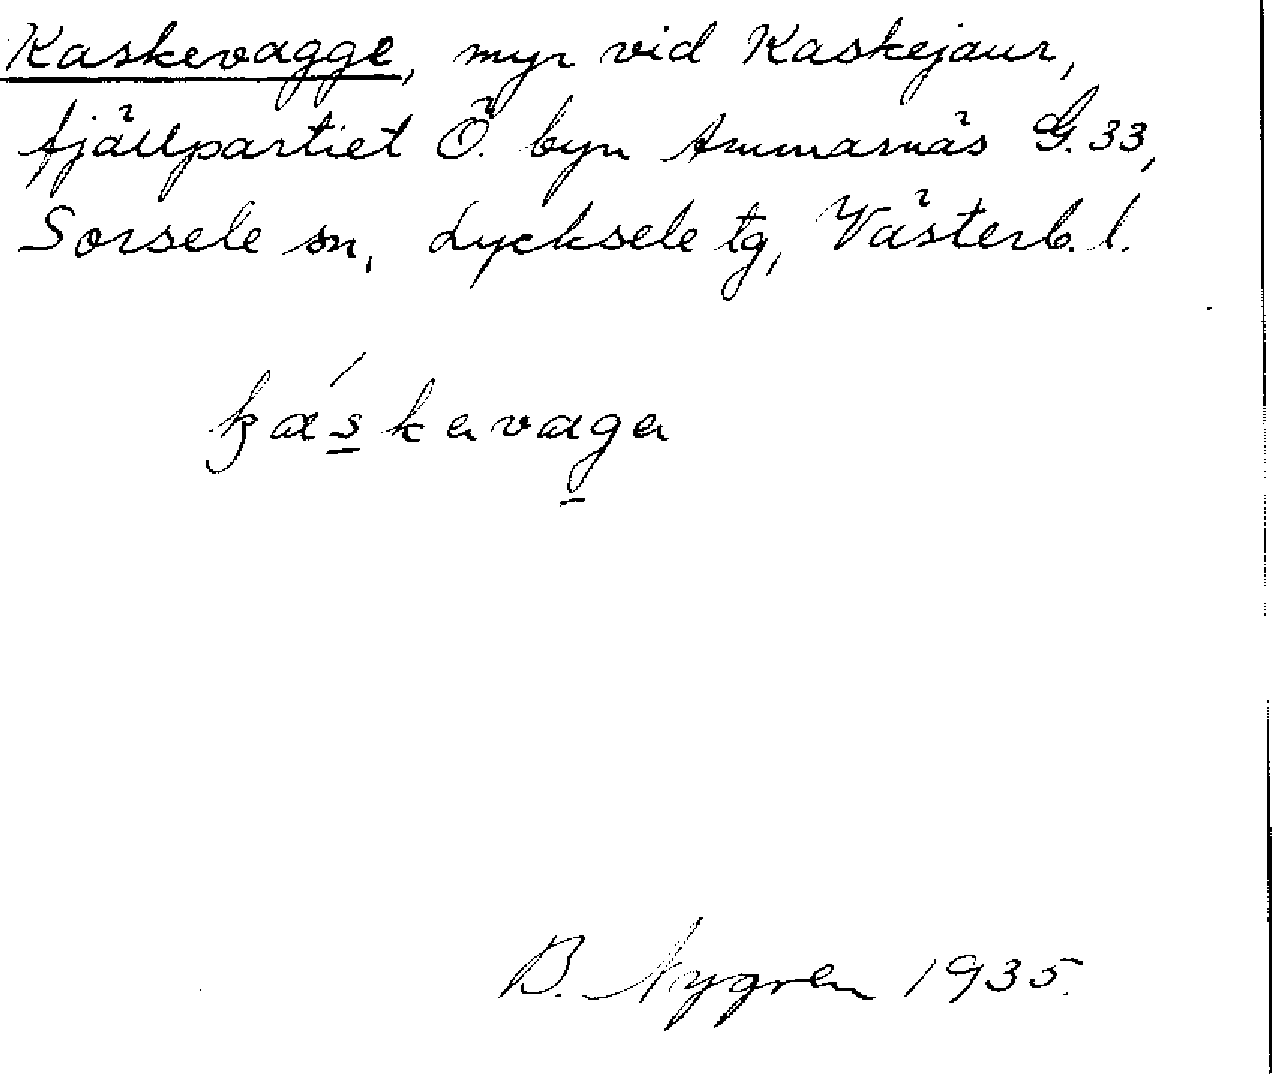 Kaskevagge, myr vid Kaskejaur,
fjällpartiet Ö. byn Ammarnäs G. 33,
Sorsele sn, Lycksele tg, Västerb. l.
ka´skavaga
B. Nygren 1935.